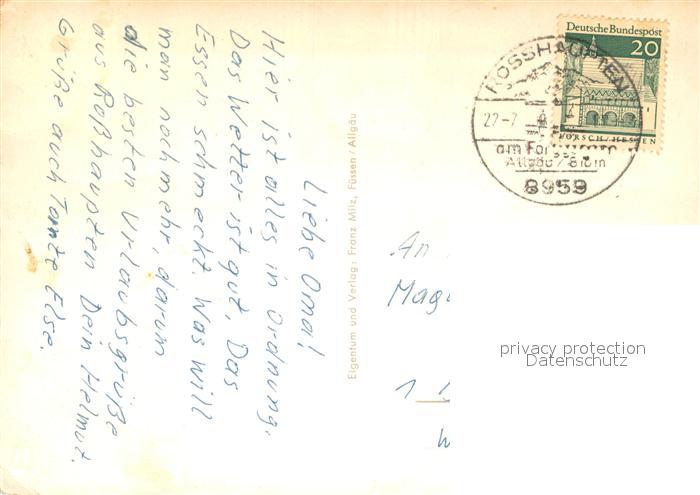 Liebe Oma!
Hier ist alles in Ordnung.
Das Wetter ist gut, Das
Essen schmeckt. Was will
man noch mehr, darum
die besten Urlaubsgrüße
aus Roßhaupten Dein Helmut.
Grüße auch Tante Else.
Eigentum und Verlag: Franz Milz, Füssen / Allgäu
Deutsche Bundespost
20
LORSCH/HESSEN
ROSSHAUPTEN
22-7
am For
Allgäu
8959
An
Mag
1
privacy protection
Datenschutz